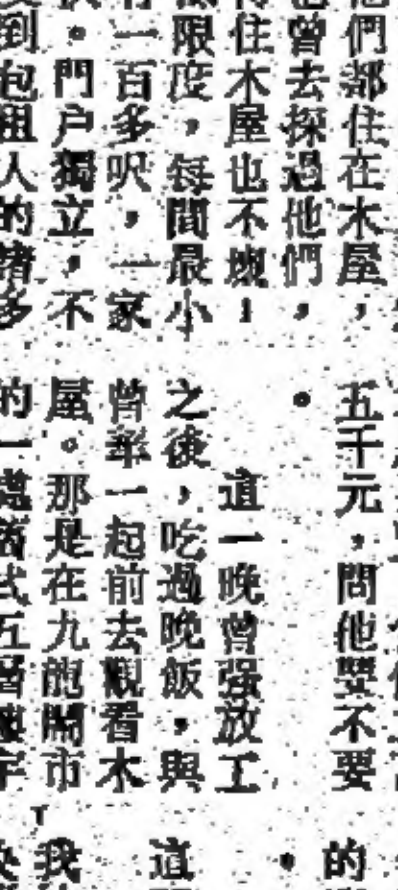 們都住在木屋，
曾去探過他們，
住木屋也不壞！
限度，每間最小
一百多呎，一家
。門户獨立，不
到包租人的諸多
五千元，問他嬰不要
。
道一晚曾强放工
之後，吃過晚飯，與
曾率一起前去觀看木
屋。那是在九龍鬧市
的一處舊式五層樓宇
的
，
這
「我